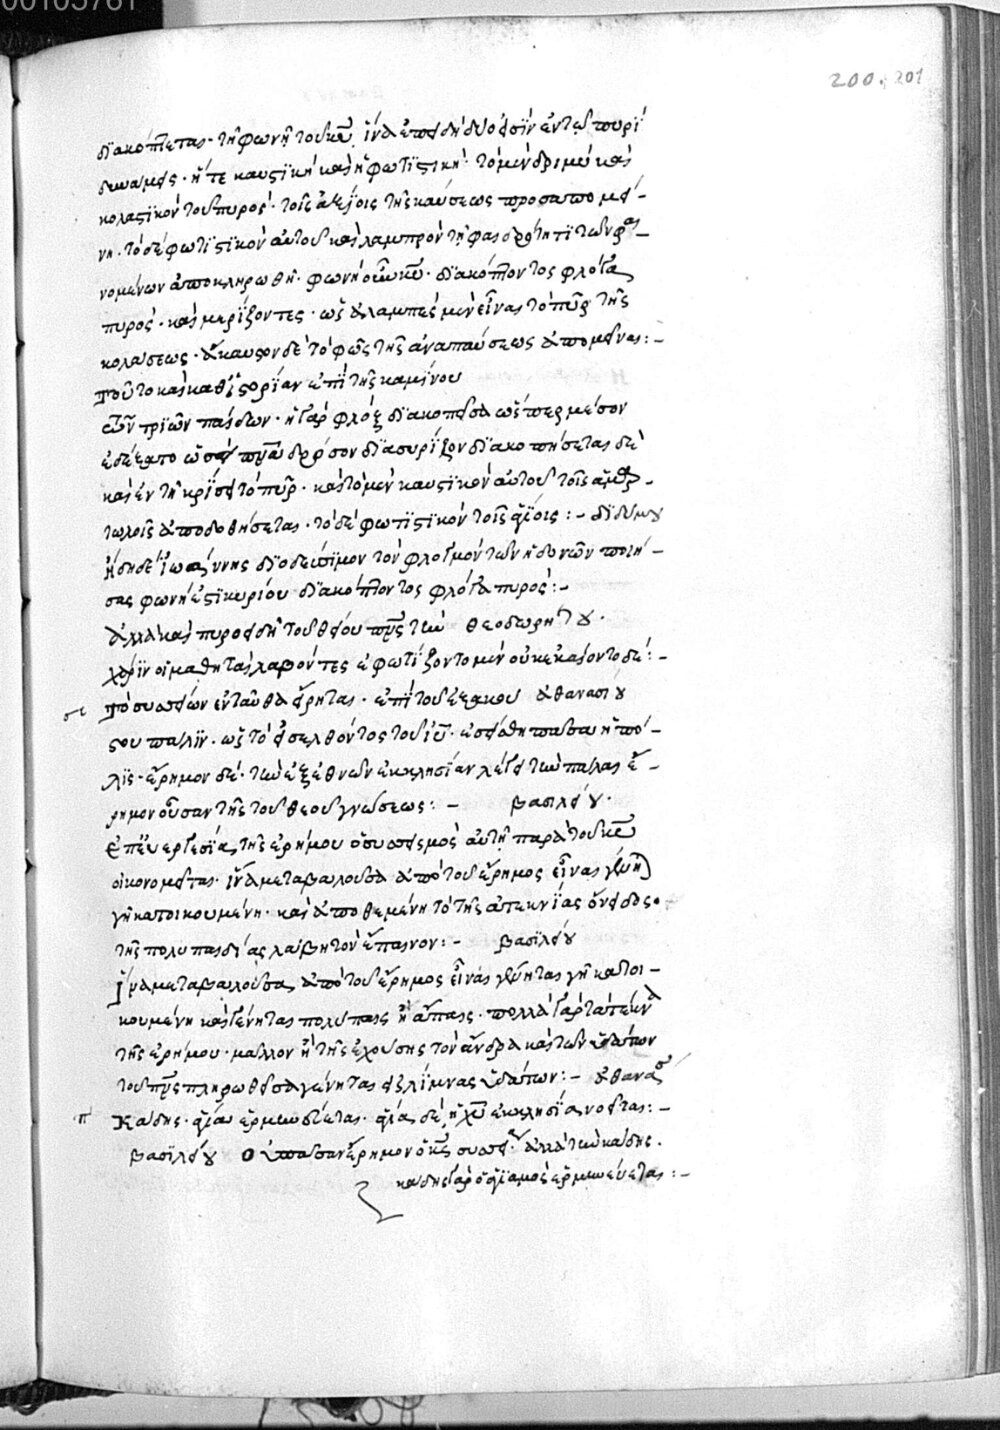 00105761
200. 201
διακόπτεται τῇ φωνῇ τοῦ κυ ἵνα ἐπειδὴ δύο εἰσὶν ἐν τῷ πυρὶ
δυνάμεις· ἥ τε καυστικὴ καὶ ἡ φωτιστική· τὸ μὲν δριμὺ καὶ
κολαστικὸν τοῦ πυρός· τοῖς ἀξίοις τῆς καύσεως προσαπομεί-
νῃ· τὸ δὲ φωτιστικὸν αὐτοῦ καὶ λαμπρὸν τῇ φαιδρότητι τῶν
νομένων ἀποκληρωθῇ· φωνὴ οὖν κυ· διακόπτοντος φλόγα
πυρός· καὶ μερίζοντος· ὡς ἀλαμπὲς μὲν εἶναι τὸ πῦρ τῆς
κολάσεως· ἄκαυστον δὲ τὸ φῶς τῆς ἀναπαύσεως ἀπομεῖναι:-
τοῦτο καὶ καθ' ἱστορίαν ἐπὶ τῆς καμίνου
τῶν τριῶν παίδων· ἡ γὰρ φλὸξ διακοπεῖσα ὥσπερ μέσον
ἐδέξατο ὡσεὶ πνα δρόσου διασυρίζον διακοπήσεται δὲ
καὶ ἐν τῇ κρίσει τὸ πῦρ· καὶ τὸ μὲν καυστικὸν αὐτοῦ τοῖς ἁμαρ-
τωλοῖς ἀποδοθήσεται· τὸ δὲ φωτιστικὸν τοῖς ἁγίοις:- διδύμου
ἤδη δὲ ἰωάννης διοδεύσιμον τὸν φλογμὸν τῶν ἡδονῶν ποιή-
σας φωνή ἐστι κυρίου διακόπτοντος φλόγα πυρός:-
ἀλλὰ καὶ πυροειδῆ τοῦ θείου πνς τὴν θεοδωρήτου·
χάριν οἱ μαθηταὶ λαβόντες ἐφωτίζοντο μὲν οὐκ ἐκαίοντο δέ:-
τὸ συσσείων ἐνταῦθα εἴρηται· ἐπὶ τοῦ ἐξ ἀθανασίου
στου πάλιν· ὡς τὸ εἰσελθόντος τοῦ ιυ· ἐσείσθη πᾶσα ἡ πό-
λις· ἔρημον δὲ· τὴν ἐξ ἐθνῶν ἐκκλησίαν λέγει τὴν πάλαι ἔ-
ρημον οὖσαν τῆς τοῦ θεοῦ γνώσεως:- βασιλείου·
ἐπ' εὐεργεσίᾳ τῆς ἐρήμου ὁ συσσεισμὸς αὐτῇ παρὰ τοῦ κυ
οἰκονομεῖται· ἵνα μεταβαλοῦσα ἀπὸ τοῦ ἔρημος εἶναι γένηται
γῆ κατοικουμένη· καὶ ἀποθεμένη τὸ τῆς ἀτεκνίας ὄνειδος·
τῆς πολυπαιδίας λάβῃ τὸν ἔπαινον:- βασιλείου
ἵνα μεταβαλοῦσα ἀπὸ τοῦ ἔρημος εἶναι γένηται γῆ κατοι-
κουμένη καὶ γένηται πολύπαις ἡ ἄπαις· πολλὰ γὰρ τὰ τέκνα
τῆς ἐρήμου· μᾶλλον ἢ τῆς ἐχούσης τὸν ἄνδρα καὶ τῶν ὑδάτων
τοῦ πνς πληρωθεῖσα γένηται εἰς λίμνας ὑδάτων:- ἀθανασ
κάδης· ἁγία ἑρμηνεύεται· ἁγία δὲ ἡ χυ ἐκκλησία νοεῖται:-
βασιλείου ὁ πᾶσαν ἔρημον ὁ κς συσσεί ἀλλὰ τὴν κάδης·
κάδης γὰρ ὁ ἁγιασμὸς ἑρμηνεύεται:-